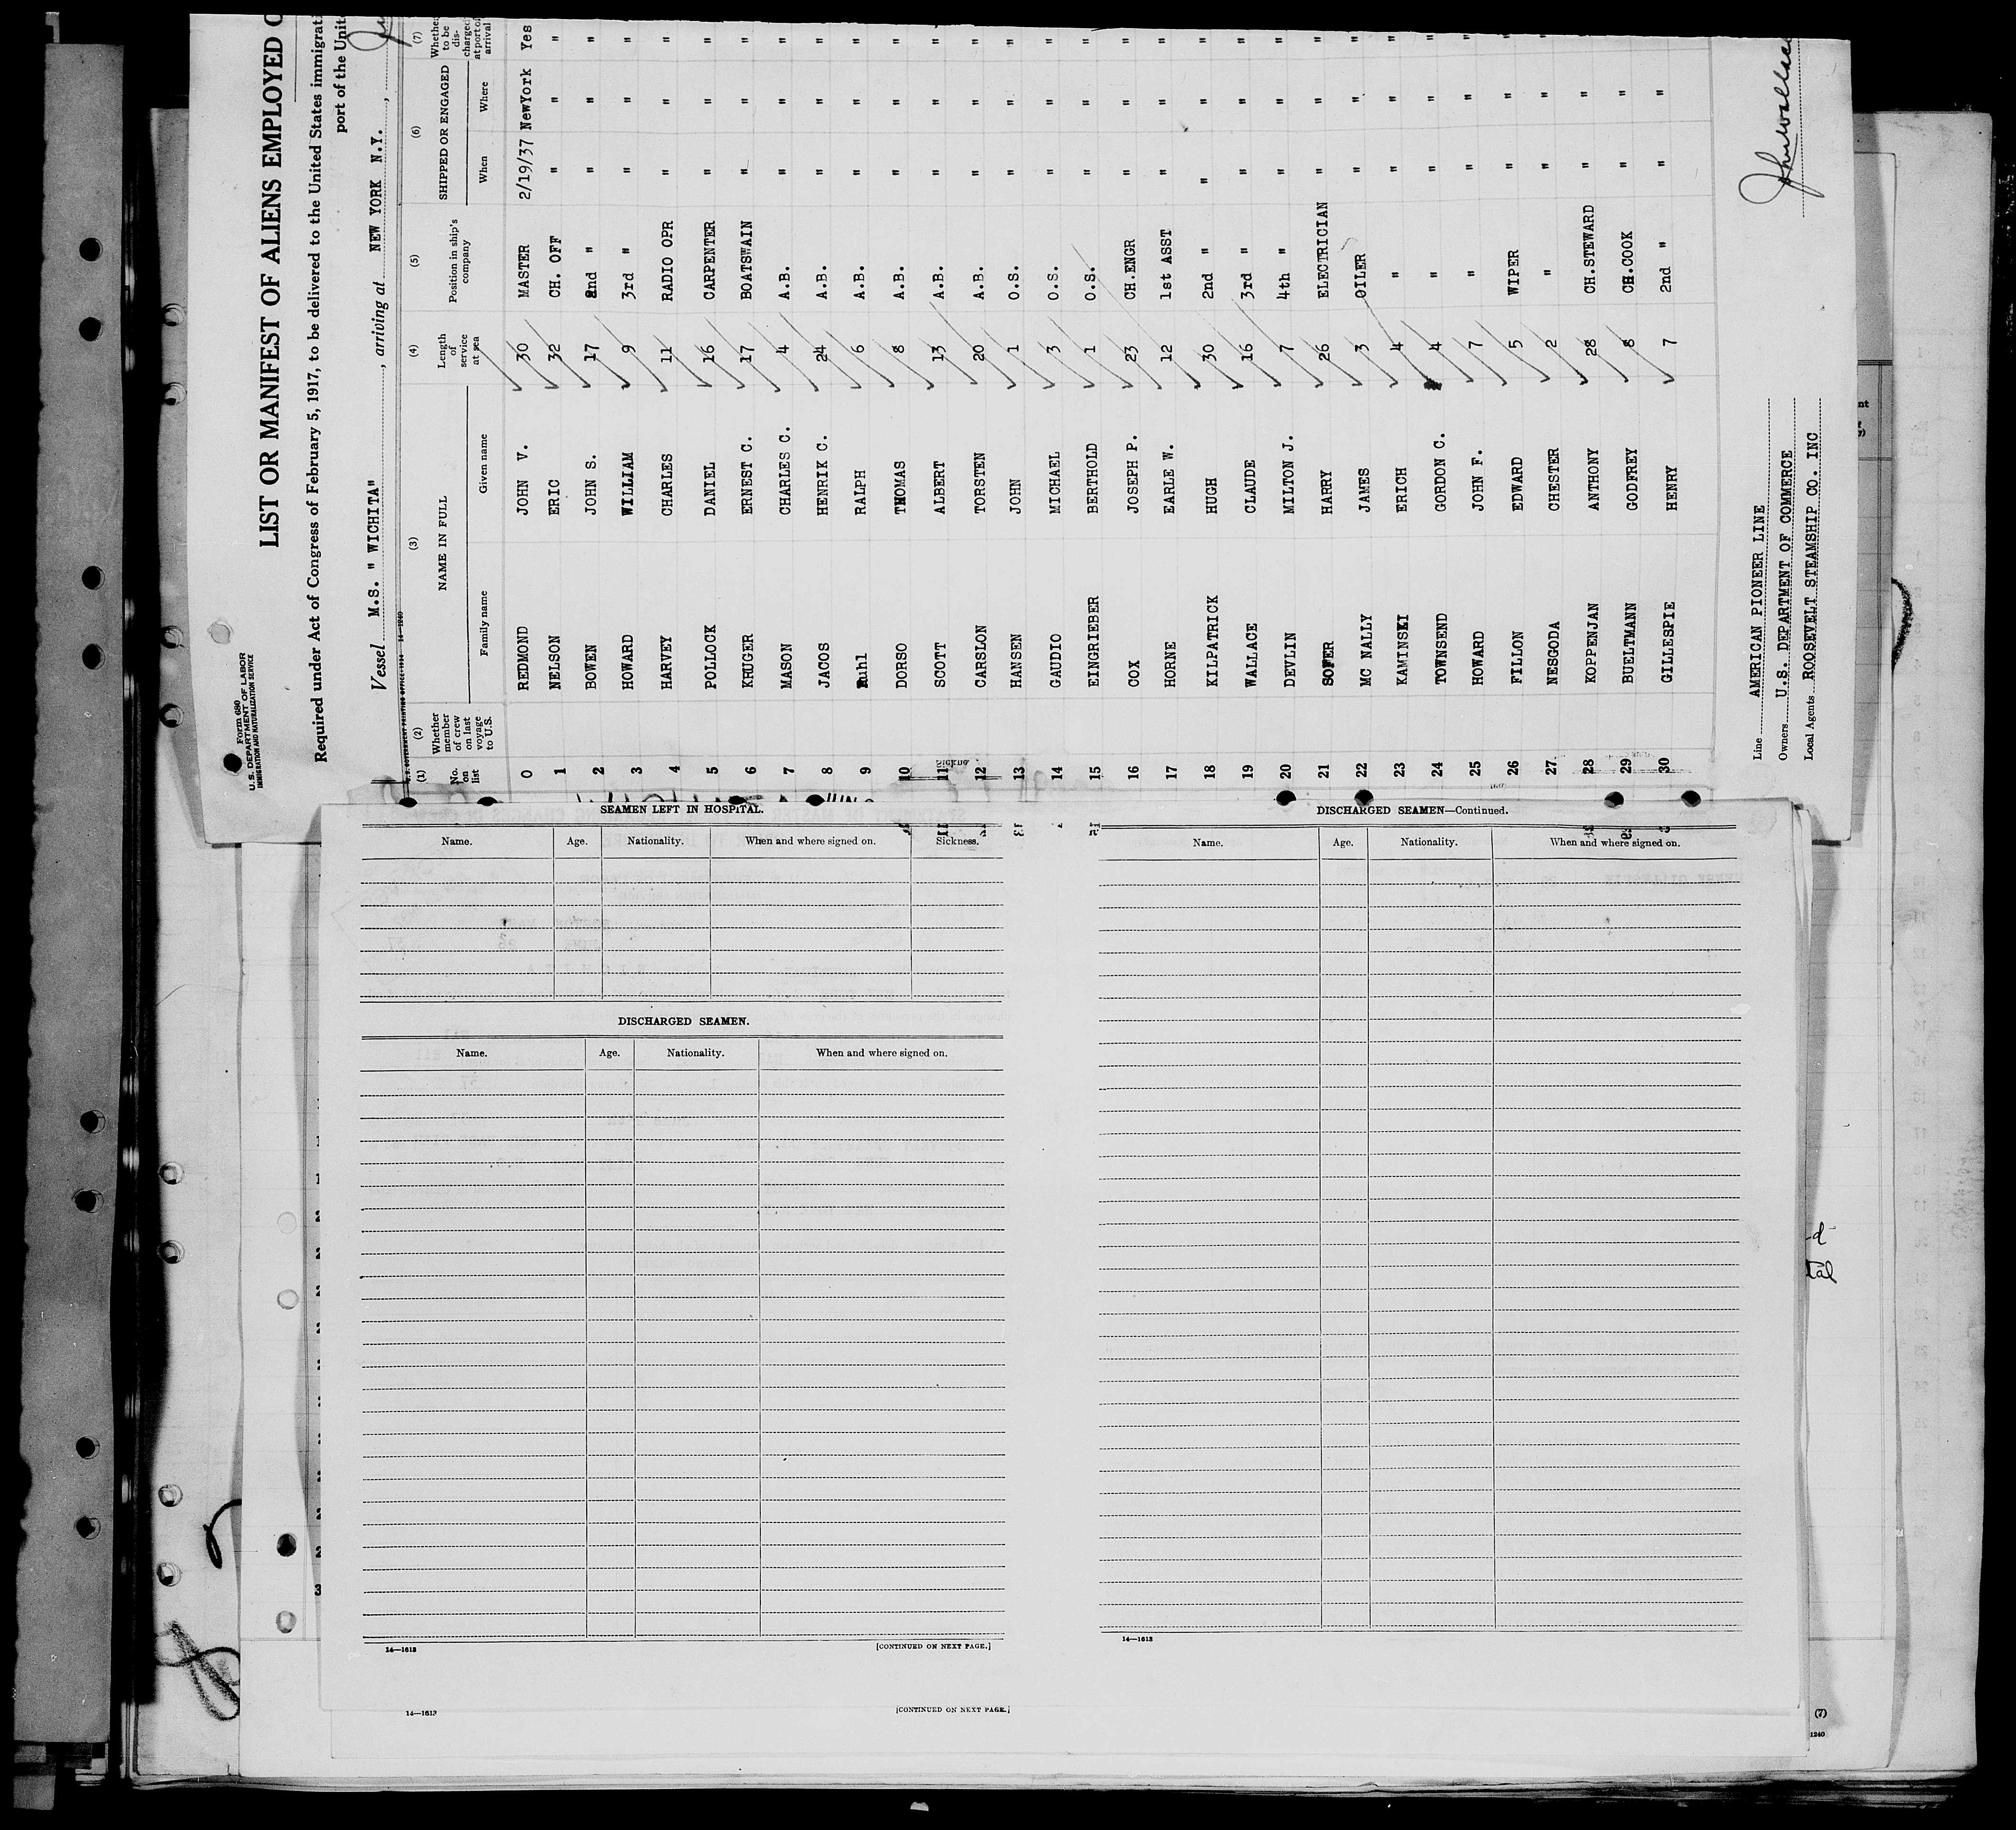 Form 680
U.S. DEPARTMENT OF LABOR
IMMIGRATION AND NATURALIZATION SERVICE
LIST OR MANIFEST OF ALIENS EMPLOYED
Required under Act of Congress of February 5, 1917, to be delivered to the United States immigrati
port of the Unit
Vessel M.S. " WICHITA" , arriving at NEW YORK N.Y. ,
(1) (2) (3) (4) (5) (6) (7)
No. on list Whether member of crew on last voyage to U.S. NAME IN FULL Length of service at sea Position in ship's company SHIPPED OR ENGAGED Whether to be discharged at port of arrival
Family name Given name When Where
0 REDMOND JOHN V. 30 MASTER 2/19/37 NewYork Yes
1 NELSON ERIC 32 CH. OFF " " "
2 BOWEN JOHN S. 17 2nd " " " "
3 HOWARD WILLIAM 9 3rd " " " "
4 HARVEY CHARLES 11 RADIO OPR " " "
5 POLLOCK DANIEL 16 CARPENTER " " "
6 KRUGER ERNEST C. 17 BOATSWAIN " " "
7 MASON CHARLES C. 4 A.B. " " "
8 JACOS HENRIK C. 24 A.B. " " "
9 Ruhl RALPH 6 A.B. " " "
10 DORSO THOMAS 8 A.B. " " "
11 SCOTT ALBERT 13 A.B. " " "
12 CARSLON TORSTEN 20 A.B. " " "
13 HANSEN JOHN 1 O.S. " " "
14 GAUDIO MICHAEL 3 O.S. " " "
15 EINGRIEBER BERTHOLD 1 O.S. " " "
16 COX JOSEPH P. 23 CH.ENGR " " "
17 HORNE EARLE W. 12 1st ASST " " "
18 KILPATRICK HUGH 30 2nd " " " "
19 WALLACE CLAUDE 16 3rd " " " "
20 DEVLIN MILTON J. 7 4th " " " "
21 SOFER HARRY 26 ELECTRICIAN " " "
22 MC NALLY JAMES 3 OILER " " "
23 KAMINSKI ERICH 4 " " " "
24 TOWNSEND GORDON C. 4 " " " "
25 HOWARD JOHN F. 7 " " " "
26 FILLON EDWARD 5 WIPER " " "
27 NESGODA CHESTER 2 " " " "
28 KOPPENJAN ANTHONY 28 CH.STEWARD " "
29 BUELTMANN GODFREY 8 CH.COOK " "
30 GILLESPIE HENRY 7 2nd " " "
Line AMERICAN PIONEER LINE
Owners U.S. DEPARTMENT OF COMMERCE
Local Agents ROOSEVELT STEAMSHIP CO. INC
SEAMEN LEFT IN HOSPITAL.
Name. Age. Nationality. When and where signed on. Sickness.
DISCHARGED SEAMEN.
Name. Age. Nationality. When and where signed on.
14—1613 [CONTINUED ON NEXT PAGE.]
DISCHARGED SEAMEN—Continued.
Name. Age. Nationality. When and where signed on.
14—1613
14—1613 [CONTINUED ON NEXT PAGE.]
(7)
1240